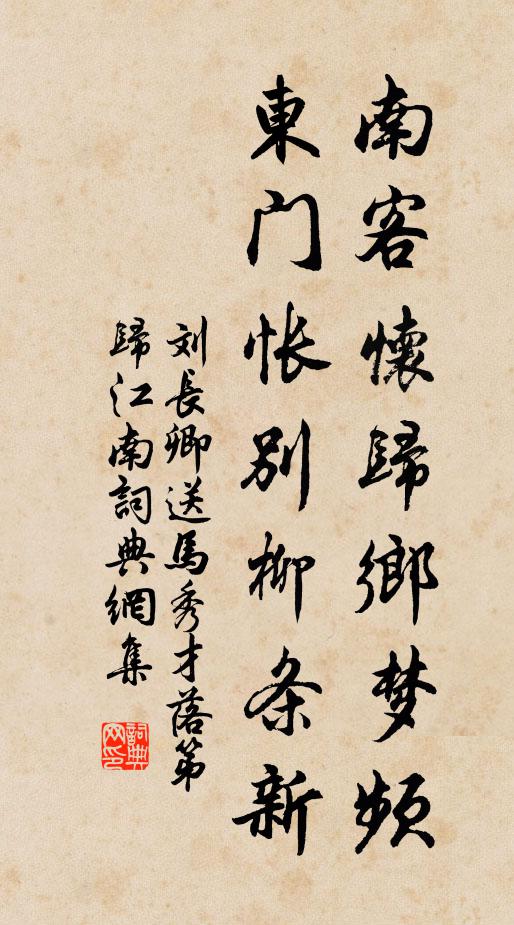 南客懷歸鄉梦頻
東门怅別柳条新
刘長卿送馬秀才落第
歸江南詞典網集
詞典
网印